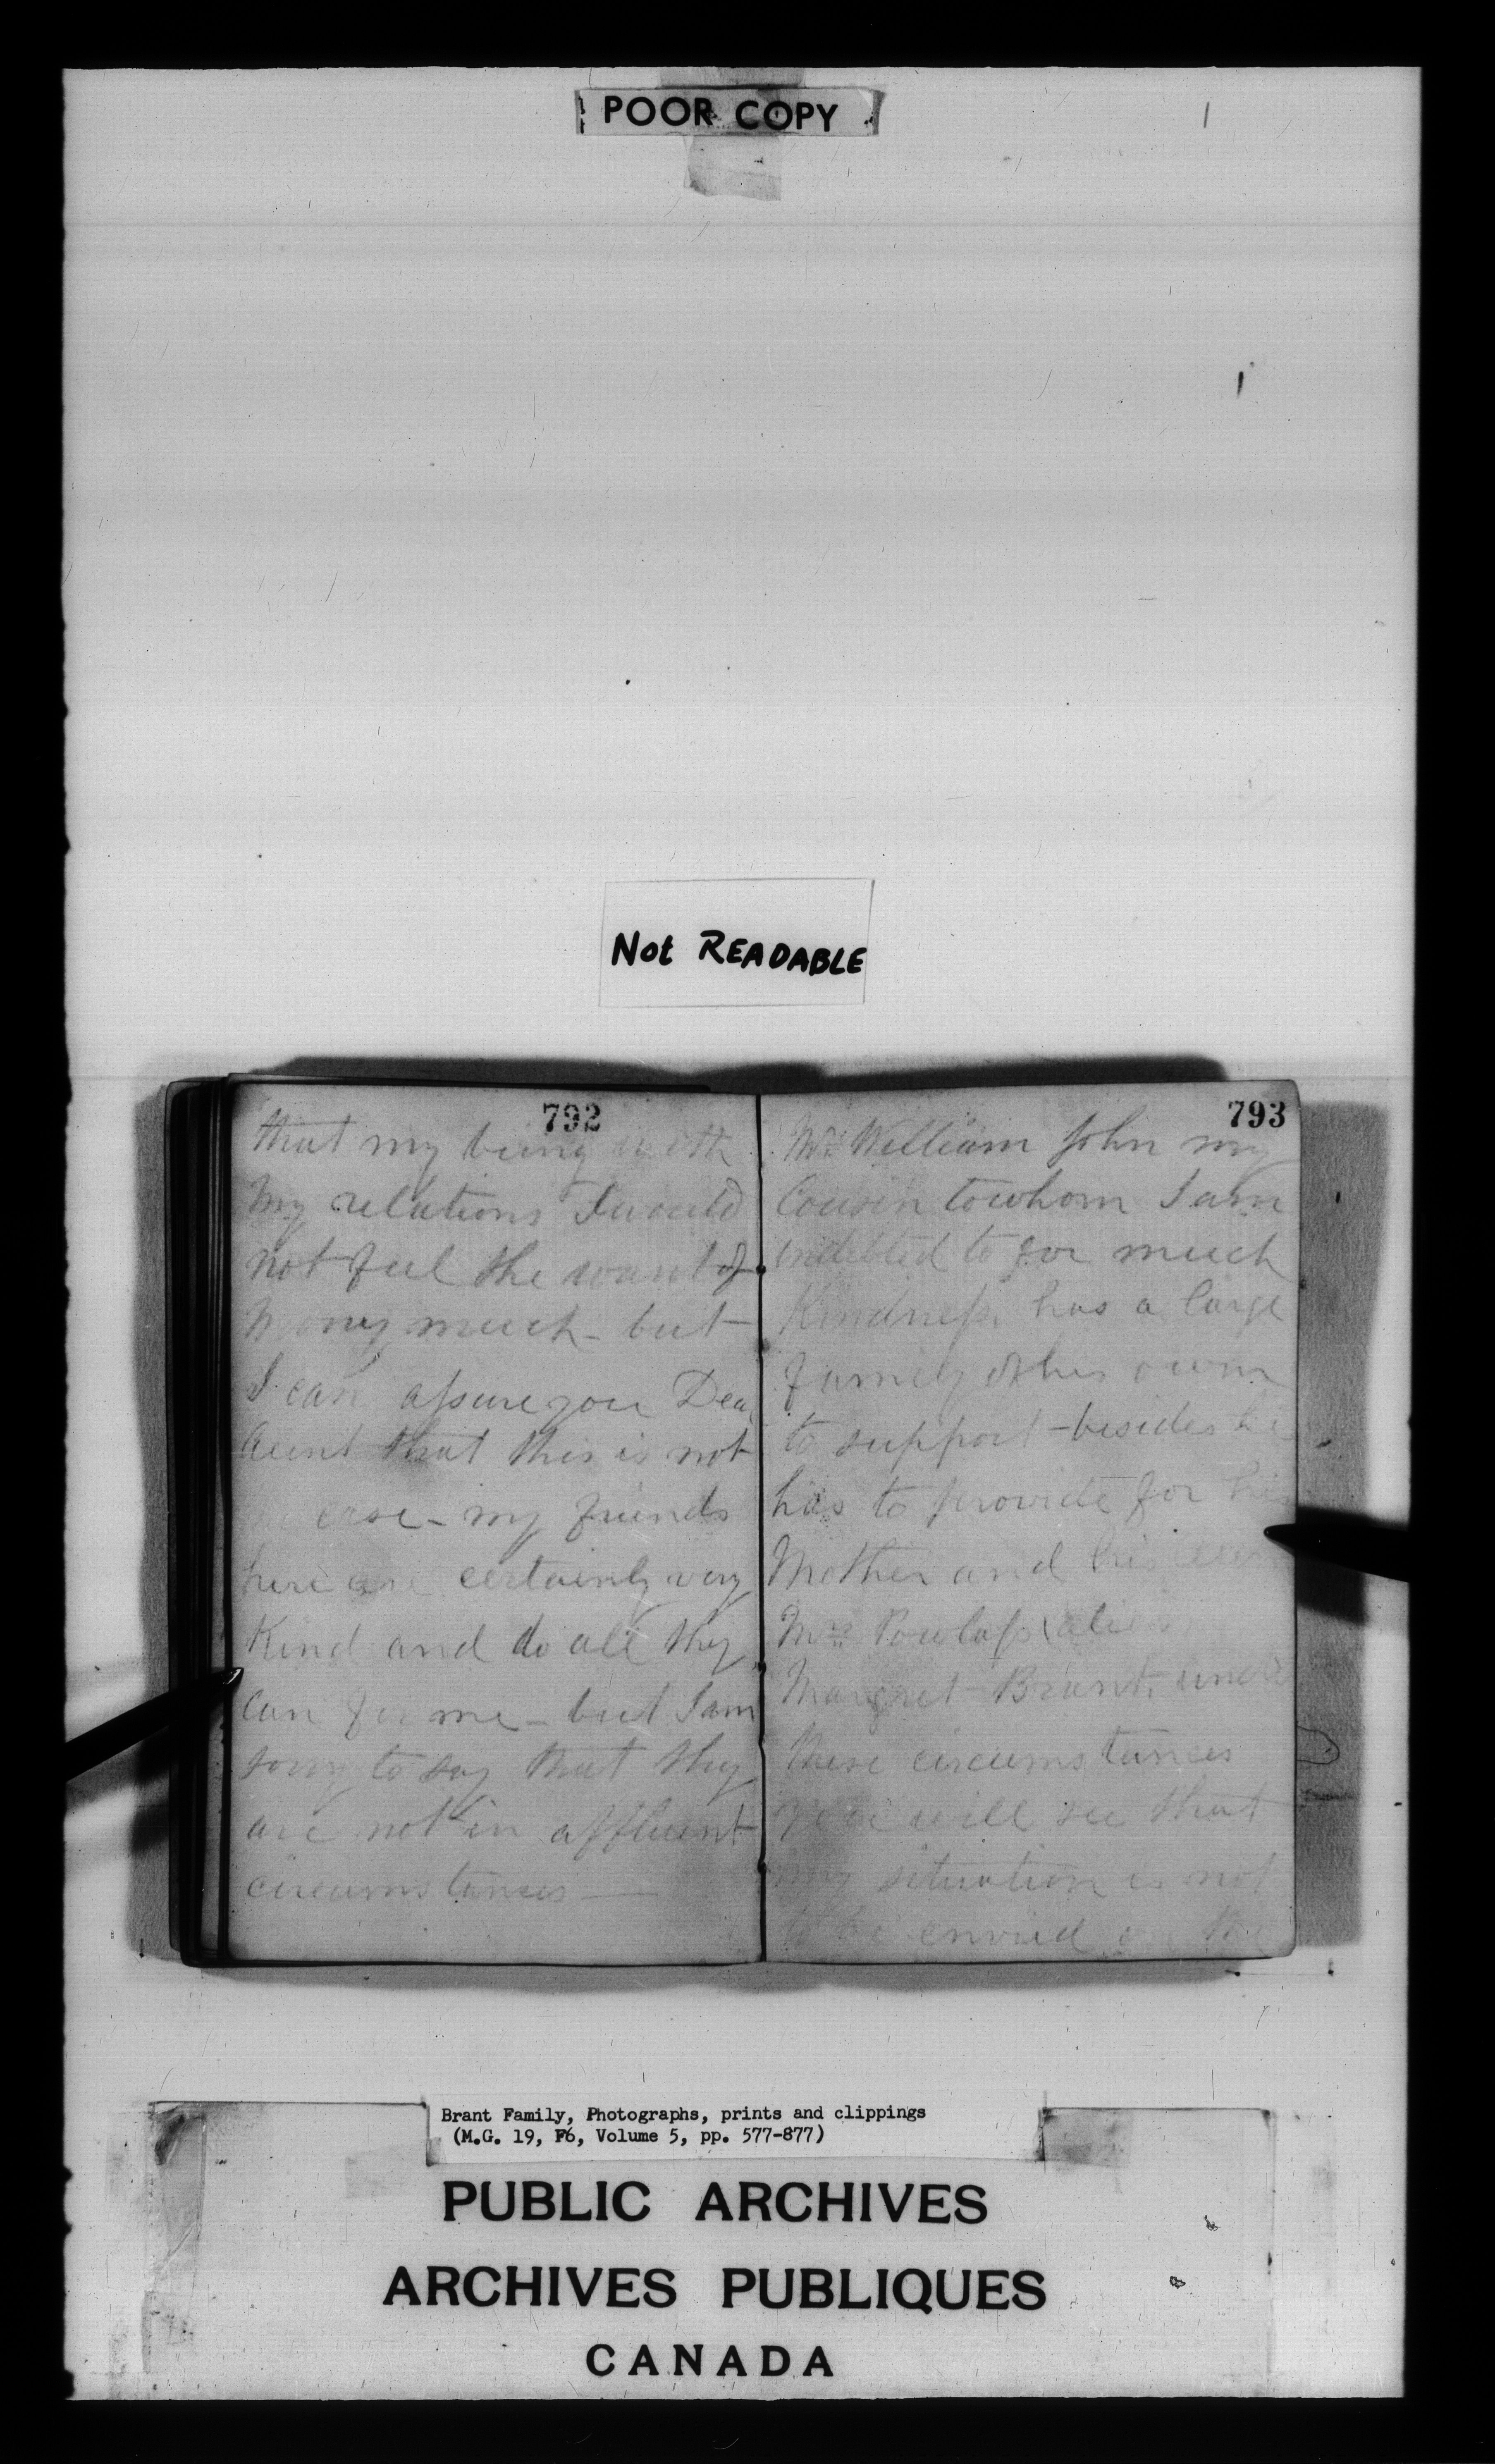 POOR COPY
Not READABLE
792
that my being with
my relations I would
not feel the want of
Money much - but
I can assure you Dea
Aunt that this is not
case - my friends
here are certainly very
Kind and do all they
can for me - but I am
sorry to say that they
are not in affluent
circumstances —
793
Mr. William John my
Cousin to whom I am
indebted to for much
Kindness, has a large
family of his own
to support - besides he
has to provide for his
Mother and his
Mrs. Powlass (alias
Margret Brant, under
these circumstances
you will see that
my situation is not
to be envied
Brant Family, Photographs, prints and clippings
(M.G. 19, F6, Volume 5, pp. 577-877)
PUBLIC ARCHIVES
ARCHIVES PUBLIQUES
CANADA